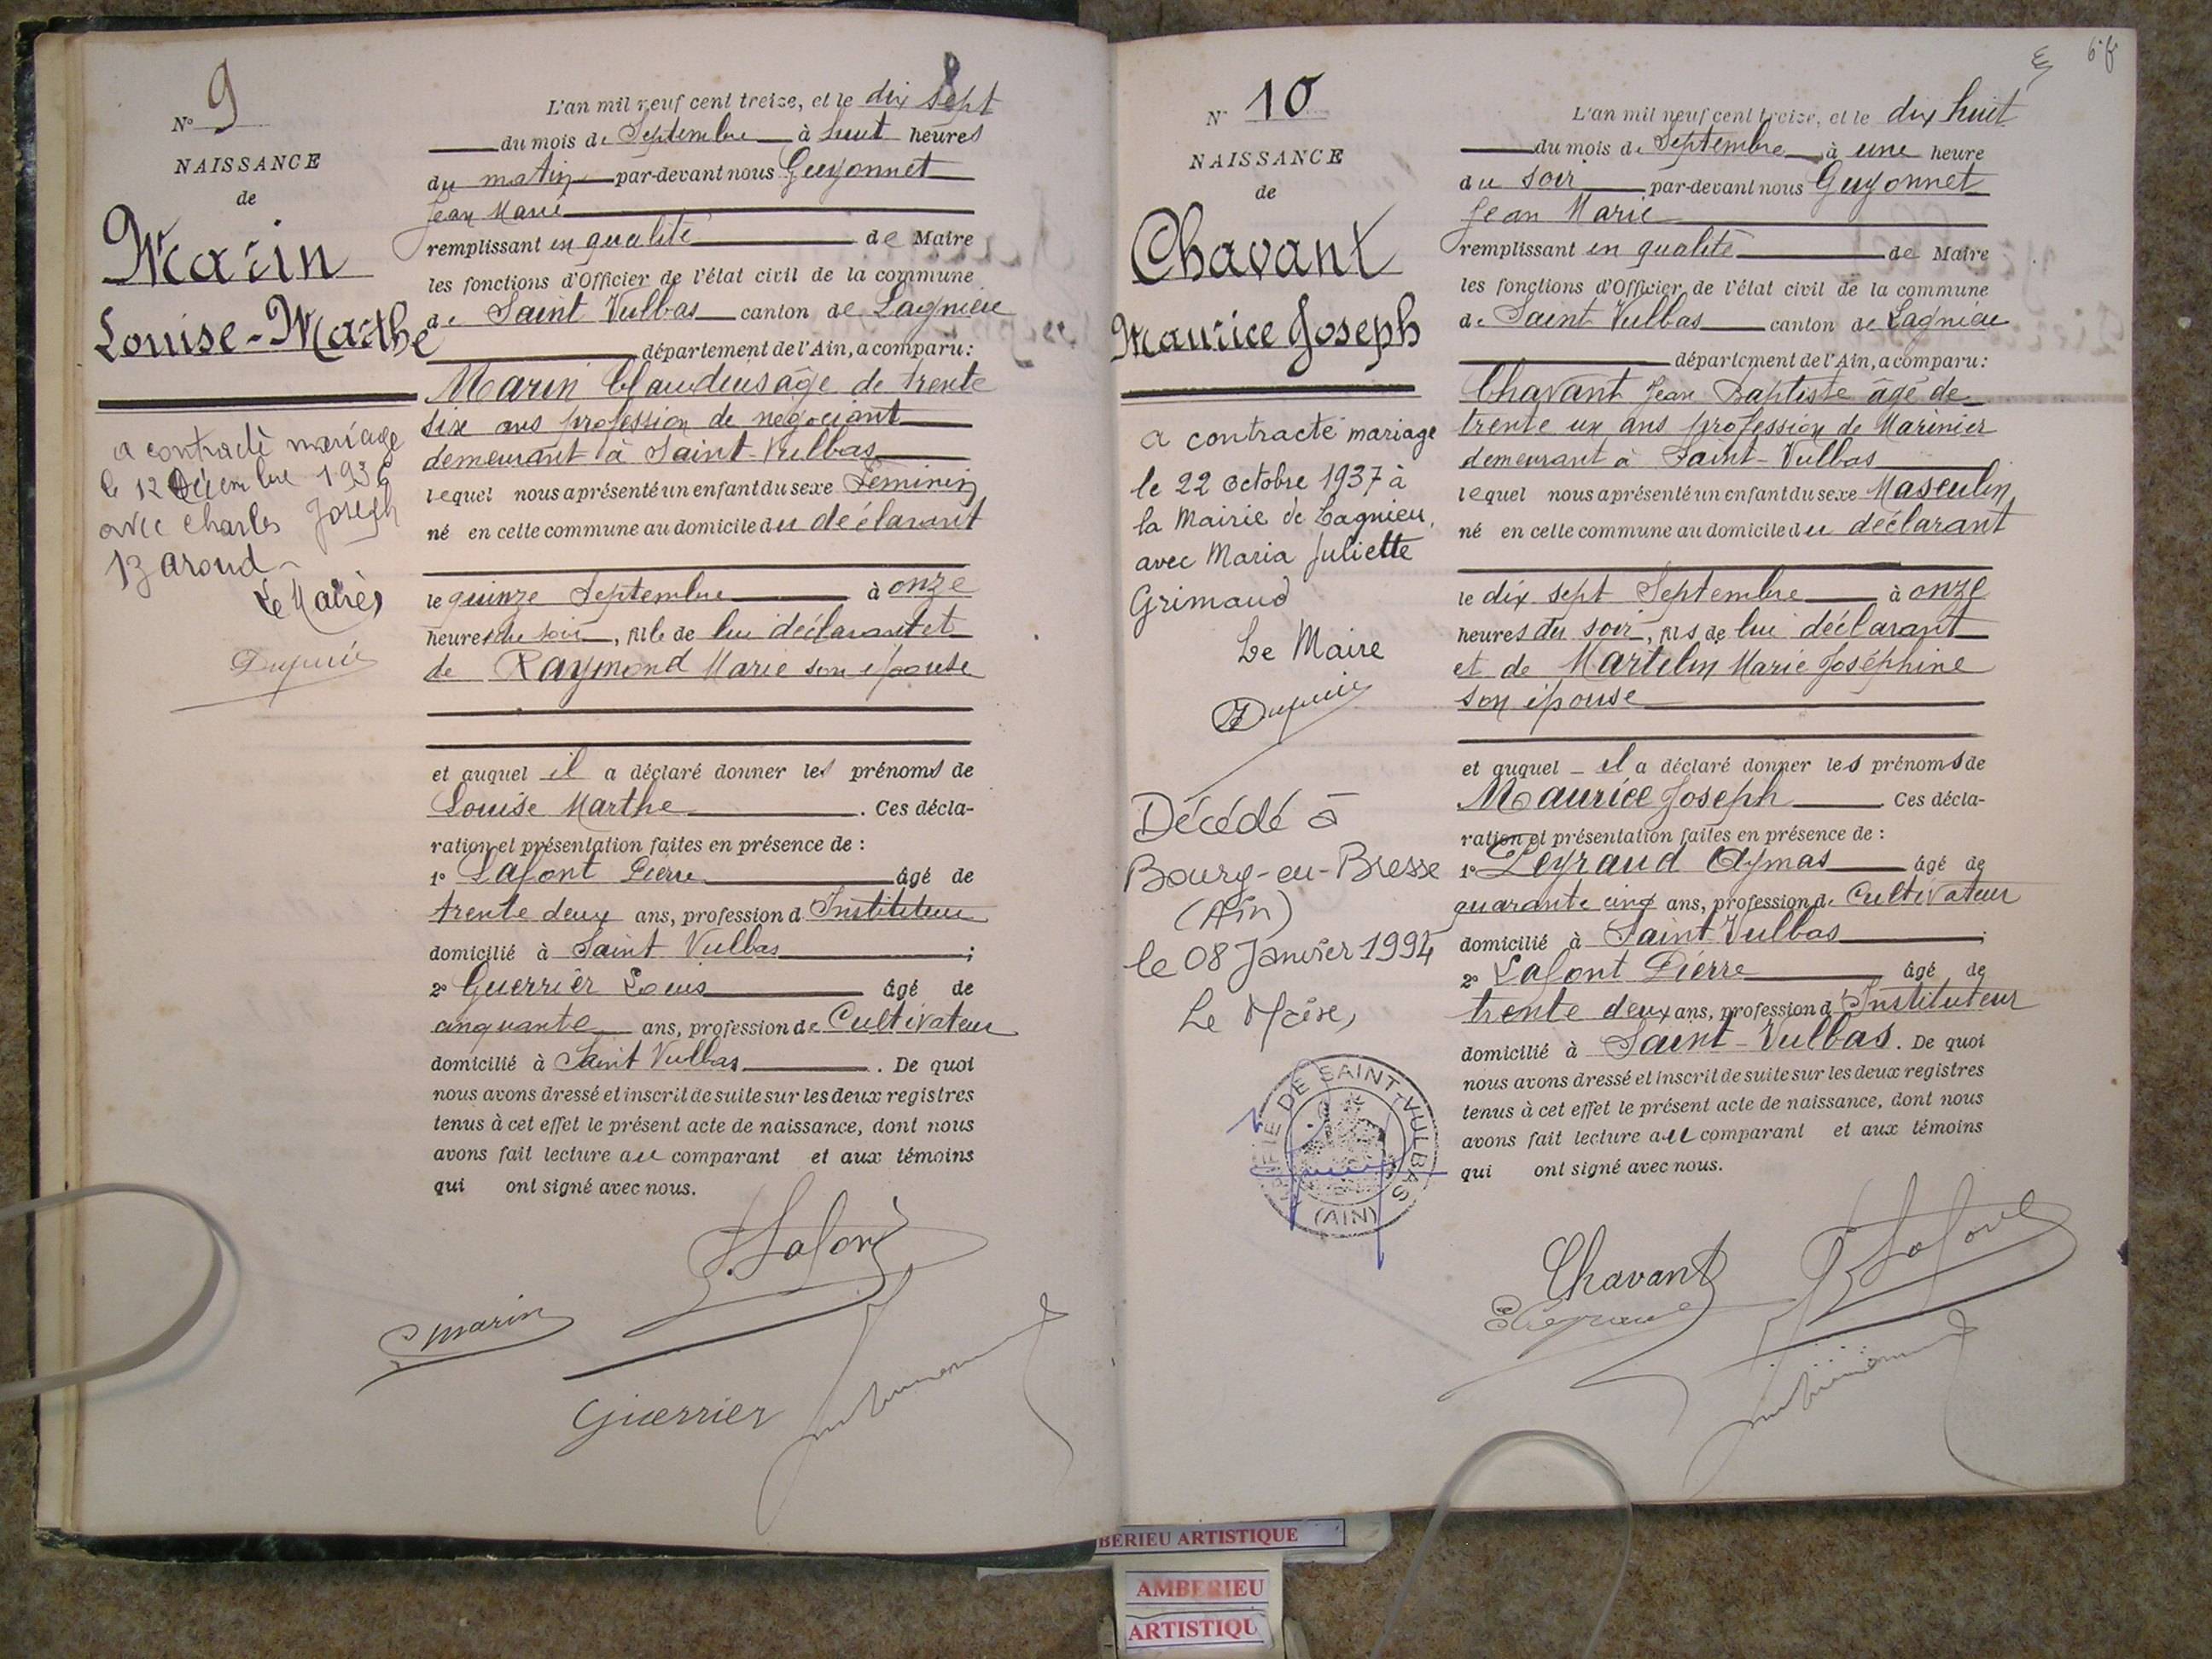 8
N° 9
NAISSANCE
de
Marin
Louise-Marthe
a contracté mariage
le 12 Décembre 1936
avec Charles Joseph
Baroud
Le Maire,
Dupuis
L'an mil neuf cent treize, et le dix sept
du mois de Septembre à huit heures
du matin par-devant nous Guyonnet
Jean Marie
remplissant en qualité de Maire
les fonctions d'Officier de l'état civil de la commune
de Saint Vulbas canton de Lagnieu
département de l'Ain, a comparu:
Marin Claudius âgé de trente
six ans profession de négociant
demeurant à Saint-Vulbas
lequel nous a présenté un enfant du sexe Féminin
né en cette commune au domicile du déclarant
le quinze Septembre à onze
heures du soir, fille de lui déclarant et
de Raymond Marie son épouse
et auquel il a déclaré donner les prénoms de
Louise Marthe. Ces décla-
ration et présentation faites en présence de :
1° Lafont Pierre âgé de
trente deux ans, profession d Instituteur
domicilié à Saint Vulbas ;
2° Guerrier Louis âgé de
cinquante ans, profession de Cultivateur
domicilié à Saint Vulbas. De quoi
nous avons dressé et inscrit de suite sur les deux registres
tenus à cet effet le présent acte de naissance, dont nous
avons fait lecture au comparant et aux témoins
qui ont signé avec nous.
P. Lafont
C Marin
Guerrier
6 f
N° 10
NAISSANCE
de
Chavant
Maurice Joseph
a contracté mariage
le 22 octobre 1937 à
la Mairie de Lagnieu,
avec Maria Juliette
Grimaud
Le Maire
Dupuis
Décédé à
Bourg-en-Bresse
(Ain)
le 08 Janvier 1994
Le Maire,
MAIRIE DE SAINT-VULBAS
(AIN)
L'an mil neuf cent treize, et le dix huit
du mois de Septembre à une heure
du soir par-devant nous Guyonnet
Jean Marie
remplissant en qualité de Maire
les fonctions d'Officier de l'état civil de la commune
de Saint Vulbas canton de Lagnieu
département de l'Ain, a comparu:
Chavant Jean Baptiste âgé de
trente un ans profession de Marinier
demeurant à Saint-Vulbas
lequel nous a présenté un enfant du sexe Masculin
né en cette commune au domicile du déclarant
le dix sept Septembre à onze
heures du soir, fils de lui déclarant
et de Martelin Marie Joséphine
son épouse
et auquel il a déclaré donner les prénoms de
Maurice Joseph. Ces décla-
ration et présentation faites en présence de :
1° Peyraud Aymas âgé de
quarante cinq ans, profession de Cultivateur
domicilié à Saint Vulbas ;
2° Lafont Pierre âgé de
trente deux ans, profession d Instituteur
domicilié à Saint-Vulbas. De quoi
nous avons dressé et inscrit de suite sur les deux registres
tenus à cet effet le présent acte de naissance, dont nous
avons fait lecture au comparant et aux témoins
qui ont signé avec nous.
Chavant
P. Lafont
BERIEU ARTISTIQUE
AMBERIEU
ARTISTIQU